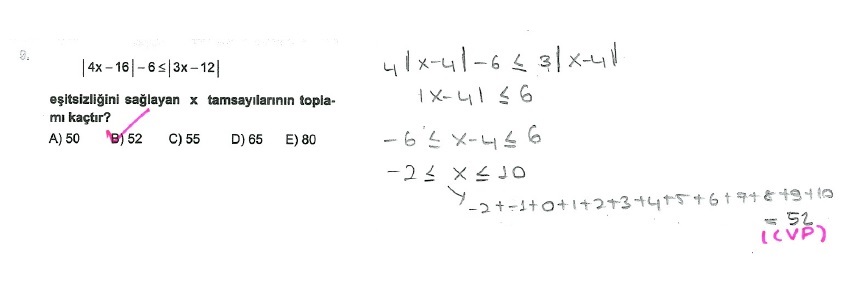 9.
|4x – 16| – 6 ≤ |3x – 12|
eşitsizliğini sağlayan x tamsayılarının topla-
mı kaçtır?
A) 50 B) 52 C) 55 D) 65 E) 80
4|x-4| - 6 ≤ 3|x-4|
|x-4| ≤ 6
-6 ≤ x-4 ≤ 6
-2 ≤ x ≤ 10
-2+-1+0+1+2+3+4+5+6+7+8+9+10
= 52
(CVP)